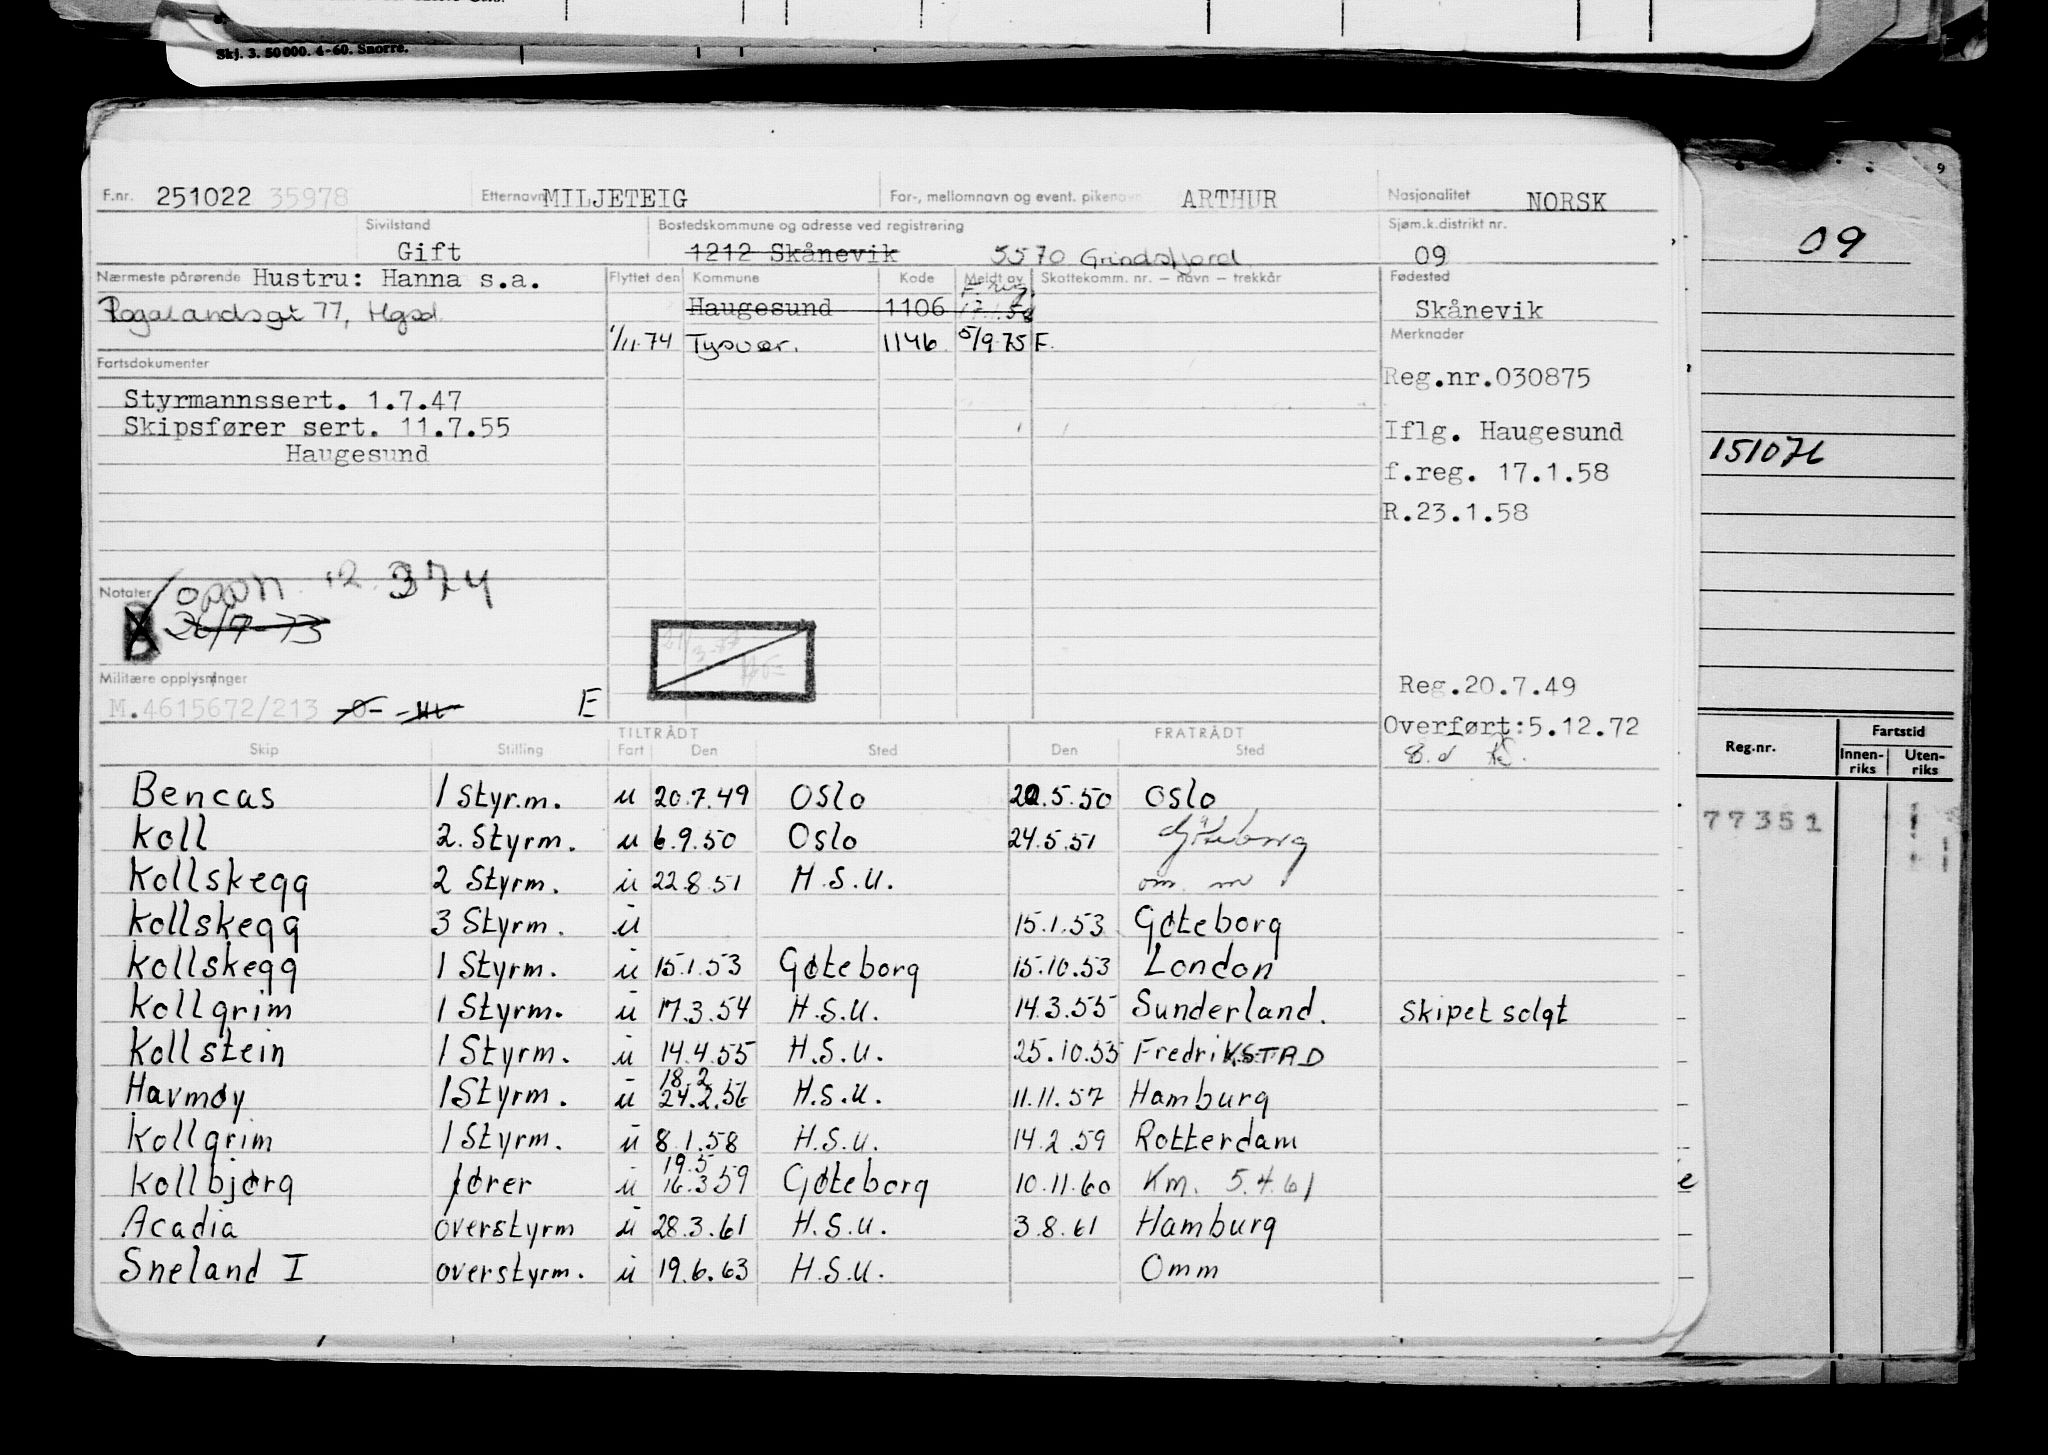 Skj. 3. 50 000. 4-60. Snorre.
F.nr. 251022 35978 Etternavn MILJETEIG For-, mellomnavn og event. pikenavn ARTHUR Nasjonalitet NORSK
Sivilstand Gift Bostedskommune og adresse ved registrering 1212 Skånevik 5570 Grindsfjord Sjøm.k.distrikt nr. 09
Nærmeste pårørende Hustru: Hanna s.a. Flyttet den Kommune Kode Meldt av Skattekomm. nr. — navn — trekkår Fødested
Rogalandsgt 77, Hgsd. Haugesund 1106 Skånevik
1/11.74 Tysvær. 1146 5/9.75 F. Merknader
Fartsdokumenter
Reg.nr.030875
Styrmannssert. 1.7.47
Skipsfører sert. 11.7.55 Iflg. Haugesund
Haugesund
f.reg. 17.1.58
R.23.1.58
Notater 12.374
26/7-73
Militære opplysninger Reg.20.7.49
M.4615672/213 E
Overført:5.12.72
TILTRÅDT FRATRÅDT
Skip Stilling Fart Den Sted Den Sted
Bencas 1 Styrm. u 20.7.49 Oslo 20.5.50 Oslo
Koll 2. Styrm. u 6.9.50 Oslo 24.5.51 Göteborg
Kollskegg 2 Styrm. u 22.8.51 H.S.U. om. m
Kollskegg 3 Styrm. u 15.1.53 Gøteborg
Kollskegg 1 Styrm. u 15.1.53 Gøteborg 15.10.53 London
Kollgrim 1 Styrm. u 17.3.54 H.S.U. 14.3.55 Sunderland. Skipet solgt
Kollstein 1 Styrm. u 14.4.55 H.S.U. 25.10.55 FredriKSTAD
18.2
Havmøy 1 Styrm. u 24.2.56 H.S.U. 11.11.57 Hamburg
Kollgrim 1 Styrm. u 8.1.58 H.S.U. 14.2.59 Rotterdam
19.5
Kollbjørg fører u 16.3.59 Gøteborg 10.11.60 Km. 5.4.61
Acadia overstyrm u 28.3.61 H.S.U. 3.8.61 Hamburg
Sneland I overstyrm. u 19.6.63 H.S.U. Omm
9
09
151076
Reg.nr. Fartstid
Innen-riks Uten-riks
77351